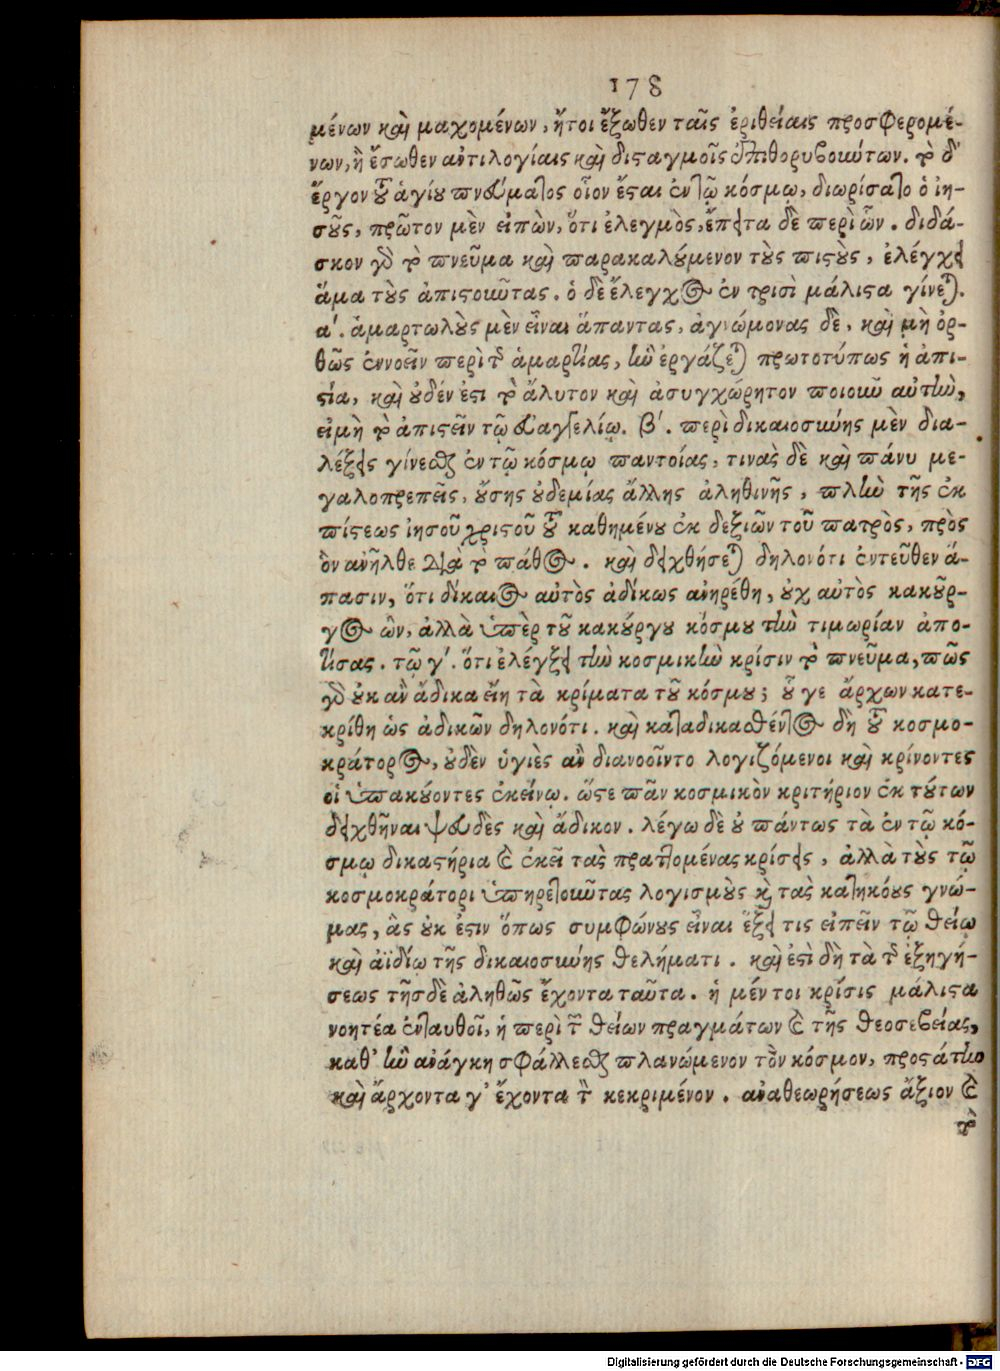 178
μένων καὶ μαχομένων, ἤτοι ἔξωθεν ταῖς ἐριθείαις προσφερομέ-
νων, ἢ ἔσωθεν ἀντιλογίαις καὶ δισταγμοῖς ἐπιθορυβούντων. τὸ δ'
ἔργον τοῦ ἁγίου πνεύματος οἷον ἔσται ἐν τῷ κόσμῳ, διωρίσατο ὁ ἰη-
σοῦς, πρῶτον μὲν εἰπὼν, ὅτι ἐλεγμὸς, ἔπειτα δὲ περὶ ὧν. διδά-
σκον γὰρ τὸ πνεῦμα καὶ παρακαλούμενον τοὺς πιστοὺς, ἐλέγχει
ἅμα τοὺς ἀπιστοῦντας. ὁ δὲ ἔλεγχος ἐν τρισὶ μάλιστα γίνεται.
α'. ἁμαρτωλοὺς μὲν εἶναι ἅπαντας, ἀγνώμονας δὲ, καὶ μὴ ὀρ-
θῶς ἐννοεῖν περὶ τῆς ἁμαρτίας, ἣν ἐργάζεται πρωτοτύπως ἡ ἀπι-
στία, καὶ οὐδέν ἐστι τὸ ἄλυτον καὶ ἀσυγχώρητον ποιοῦν αὐτὴν,
εἰμὴ τὸ ἀπιστεῖν τῷ εὐαγγελίῳ. β'. περὶ δικαιοσύνης μὲν δια-
λέξεις γίνεσθαι ἐν τῷ κόσμῳ παντοίας, τινὰς δὲ καὶ πάνυ με-
γαλοπρεπεῖς, οὔσης οὐδεμίας ἄλλης ἀληθινῆς, πλὴν τῆς ἐκ
πίστεως ἰησοῦ χριστοῦ τοῦ καθημένου ἐκ δεξιῶν τοῦ πατρὸς, πρὸς
ὃν ἀνῆλθε διὰ τὸ πάθος. καὶ δειχθήσεται δηλονότι ἐντεῦθεν ἅ-
πασιν, ὅτι δίκαιος αὐτὸς ἀδίκως ἀνηρέθη, οὐχ αὐτὸς κακοῦρ-
γος ὢν, ἀλλὰ ὑπὲρ τοῦ κακούργου κόσμου τὴν τιμωρίαν ἀπο-
τίσας. τῷ γ'. ὅτι ἐλέγξει τὴν κοσμικὴν κρίσιν τὸ πνεῦμα, πῶς
γὰρ οὐκ ἂν ἄδικα εἴη τὰ κρίματα τοῦ κόσμου; οὗ γε ἄρχων κατε-
κρίθη ὡς ἀδικῶν δηλονότι. καὶ καταδικασθέντος δὴ τοῦ κοσμο-
κράτορος, οὐδὲν ὑγιὲς ἂν διανοοῖντο λογιζόμενοι καὶ κρίνοντες
οἱ ὑπακούοντες ἐκείνῳ. ὥστε πᾶν κοσμικὸν κριτήριον ἐκ τούτων
δειχθῆναι ψευδὲς καὶ ἄδικον. λέγω δὲ οὐ πάντως τὰ ἐν τῷ κό-
σμῳ δικαστήρια καὶ ἐκεῖ τὰς πραττομένας κρίσεις, ἀλλὰ τοὺς τῷ
κοσμοκράτορι ὑπηρετοῦντας λογισμοὺς καὶ τὰς κατηκόους γνώ-
μας, ἃς οὐκ ἔστιν ὅπως συμφώνους εἶναι ἕξει τις εἰπεῖν τῷ θείῳ
καὶ ἀϊδίῳ τῆς δικαιοσύνης θελήματι. καὶ ἐστὶ δὴ τὰ τῆς ἐξηγή-
σεως τῆσδε ἀληθῶς ἔχοντα ταῦτα. ἡ μέν τοι κρίσις μάλιστα
νοητέα ἐνταυθοῖ, ἡ περὶ τῶν θείων πραγμάτων καὶ τῆς θεοσεβείας,
καθ' ἣν ἀνάγκη σφάλλεσθαι πλανώμενον τὸν κόσμον, προστάτην
καὶ ἄρχοντα γ' ἔχοντα τὸν κεκριμένον. ἀναθεωρήσεως ἄξιον καὶ
τὸ
Digitalisierung gefördert durch die Deutsche Forschungsgemeinschaft - DFG